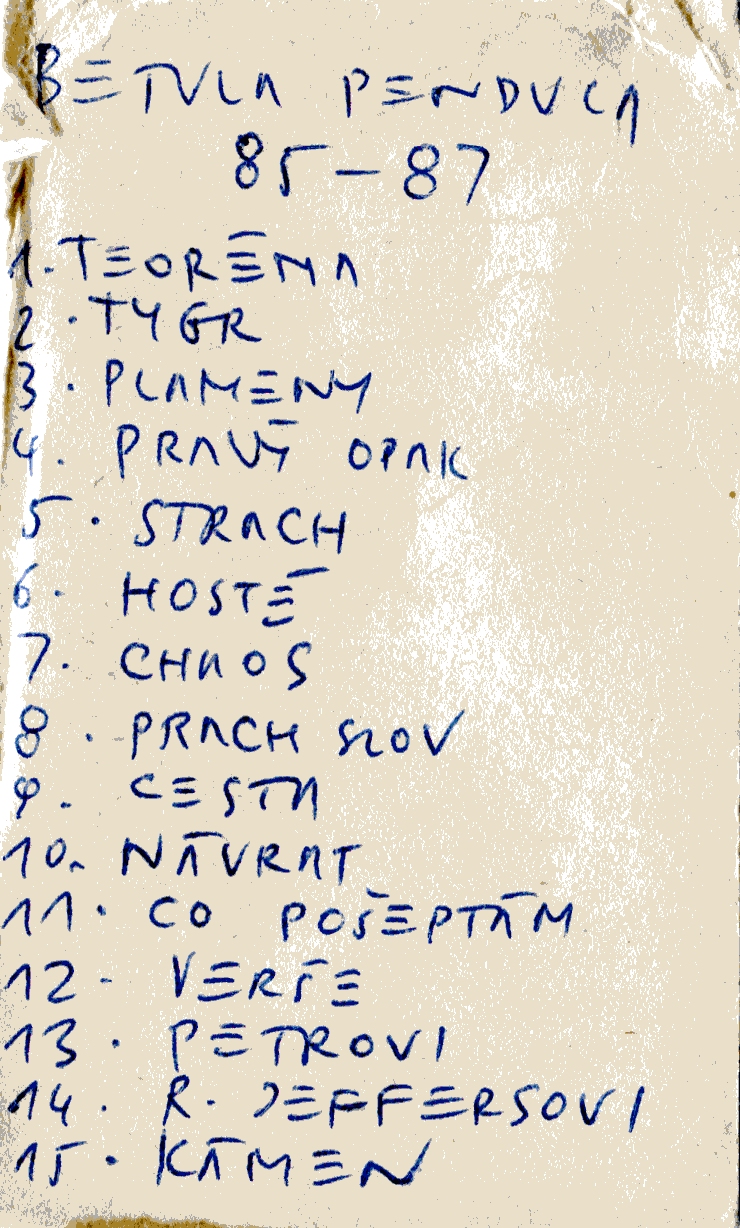 BETULA PENDULA
85-87
1. TEORÉMA
2. TYGR
3. PLAMENY
4. PRAVÝ OPAK
5. STRACH
6. HOSTÉ
7. CHAOS
8. PRACH SLOV
9. CESTA
10. NÁVRAT
11. CO POŠEPTÁM
12. VERŠE
13. PETROVI
14. R. JEFFERSOVI
15. KÁMEN